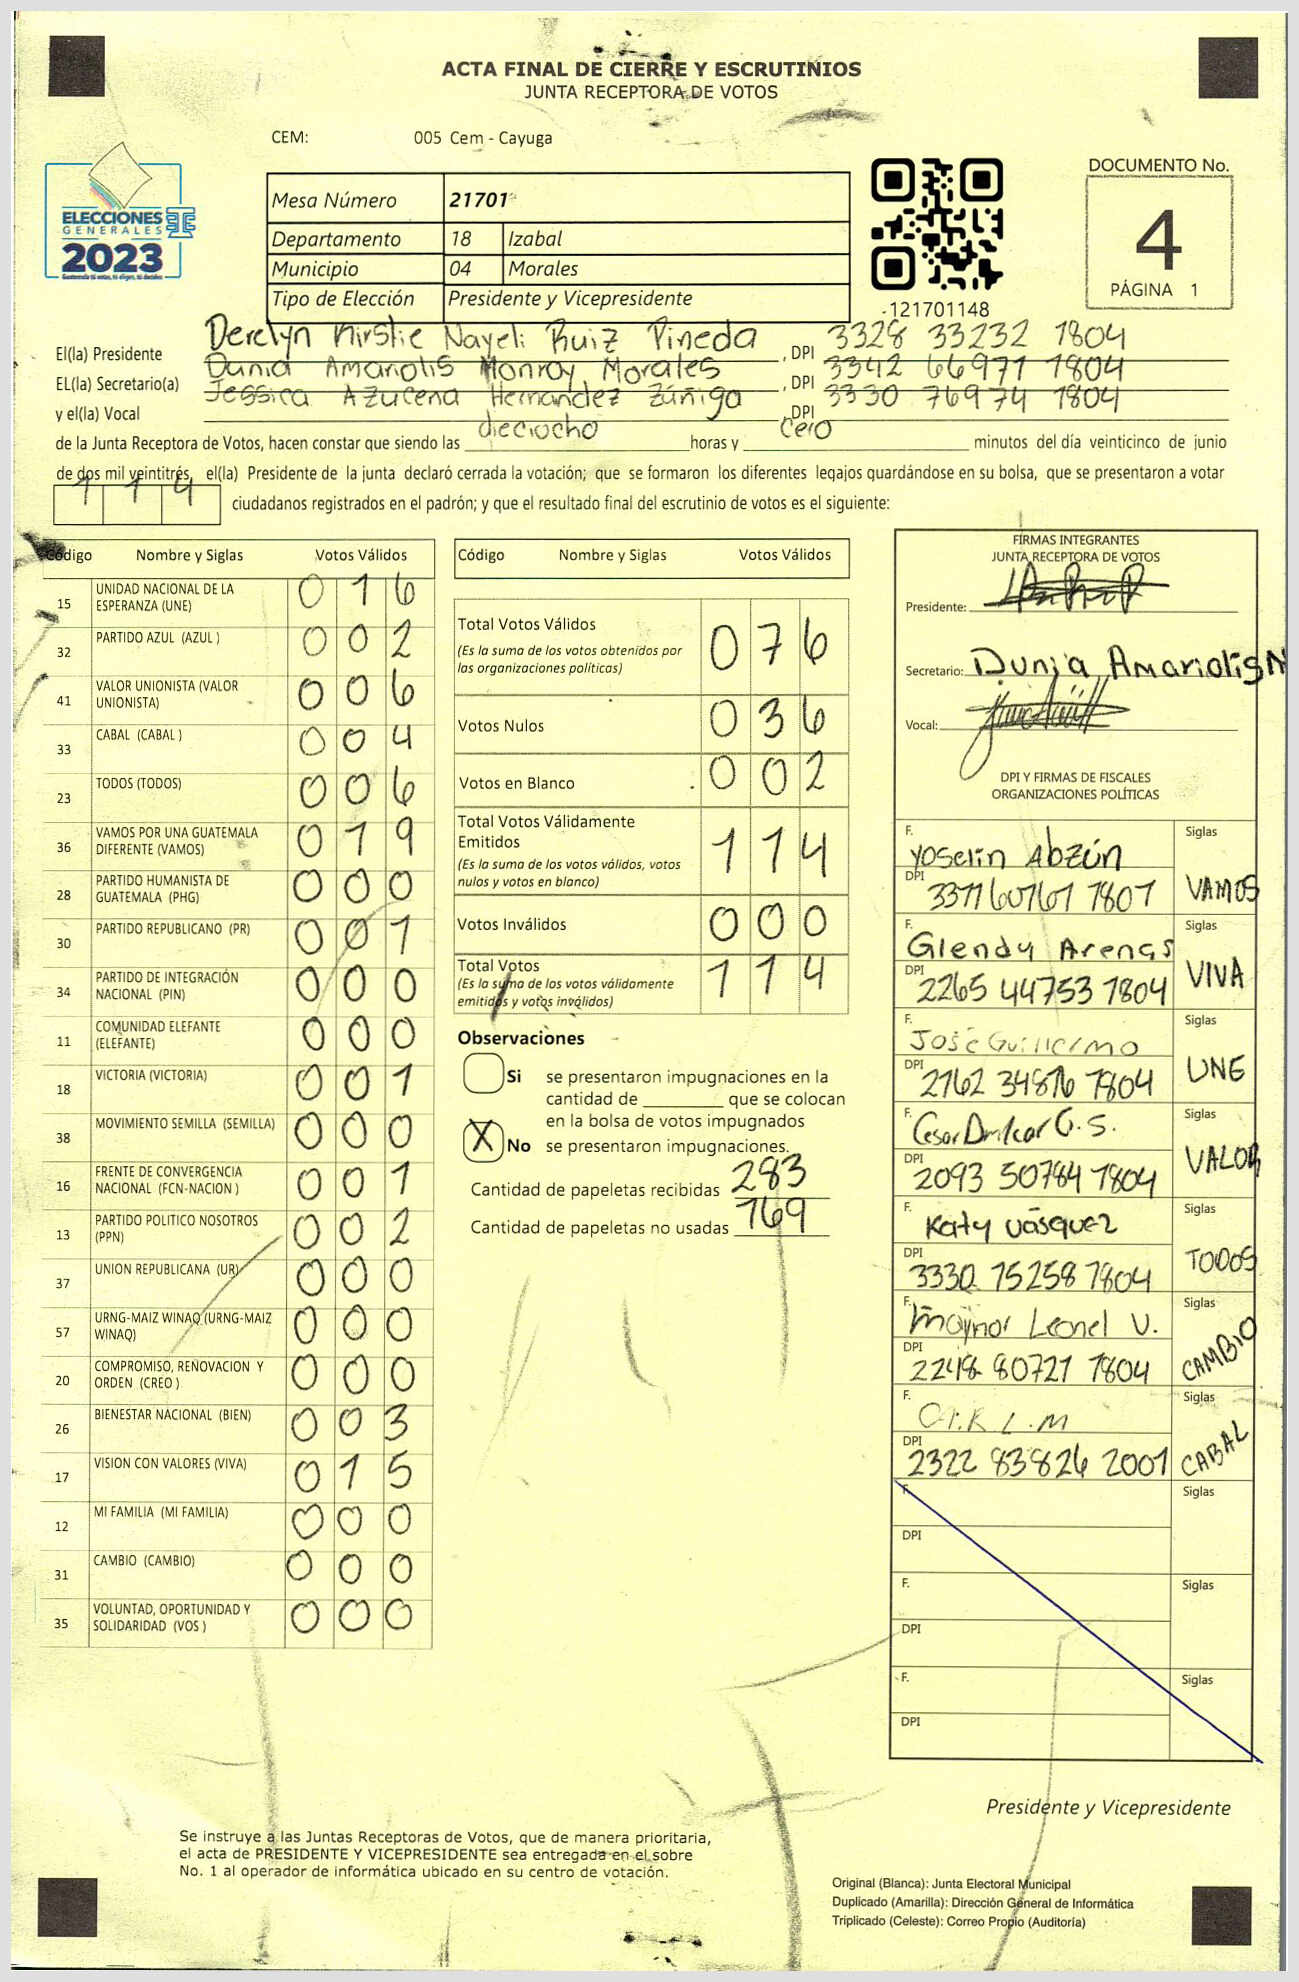 ACTA FINAL DE CIERRE Y ESCRUTINIOS
JUNTA RECEPTORA DE VOTOS
CEM: 005 Cem - Cayuga
ELECCIONES
GENERALES
2023
Mesa Número 21701
Departamento 18 Izabal
Municipio 04 Morales
Tipo de Elección Presidente y Vicepresidente
121701148
DOCUMENTO No.
4
PÁGINA 1
El(la) Presidente Derelyn Kirstie Nayeli Ruiz Pineda, DPI 3328 33232 1804
EL(la) Secretario(a) Dunia Amariolis Monroy Morales, DPI 3342 66971 1804
y el(la) Vocal Jessica Azucena Hernandez Zúñiga, DPI 3330 76974 1804
de la Junta Receptora de Votos, hacen constar que siendo las dieciocho horas y cero minutos del día veinticinco de junio
de dos mil veintitrés, el(la) Presidente de la junta declaró cerrada la votación; que se formaron los diferentes legajos guardándose en su bolsa, que se presentaron a votar
114 ciudadanos registrados en el padrón; y que el resultado final del escrutinio de votos es el siguiente:
Código Nombre y Siglas Votos Válidos
15 UNIDAD NACIONAL DE LA ESPERANZA (UNE) 016
32 PARTIDO AZUL (AZUL ) 002
41 VALOR UNIONISTA (VALOR UNIONISTA) 006
33 CABAL (CABAL ) 004
23 TODOS (TODOS) 006
36 VAMOS POR UNA GUATEMALA DIFERENTE (VAMOS) 019
28 PARTIDO HUMANISTA DE GUATEMALA (PHG) 000
30 PARTIDO REPUBLICANO (PR) 001
34 PARTIDO DE INTEGRACIÓN NACIONAL (PIN) 000
11 COMUNIDAD ELEFANTE (ELEFANTE) 000
18 VICTORIA (VICTORIA) 001
38 MOVIMIENTO SEMILLA (SEMILLA) 000
16 FRENTE DE CONVERGENCIA NACIONAL (FCN-NACION ) 001
13 PARTIDO POLITICO NOSOTROS (PPN) 002
37 UNION REPUBLICANA (UR) 000
57 URNG-MAIZ WINAQ (URNG-MAIZ WINAQ) 000
20 COMPROMISO, RENOVACION Y ORDEN (CREO ) 000
26 BIENESTAR NACIONAL (BIEN) 003
17 VISION CON VALORES (VIVA) 015
12 MI FAMILIA (MI FAMILIA) 000
31 CAMBIO (CAMBIO) 000
35 VOLUNTAD, OPORTUNIDAD Y SOLIDARIDAD (VOS ) 000
Código Nombre y Siglas Votos Válidos
Total Votos Válidos 076
(Es la suma de los votos obtenidos por
las organizaciones políticas)
Votos Nulos 036
Votos en Blanco 002
Total Votos Válidamente
Emitidos 114
(Es la suma de los votos válidos, votos
nulos y votos en blanco)
Votos Inválidos 000
Total Votos 114
(Es la suma de los votos válidamente
emitidos y votos inválidos)
Observaciones
Si se presentaron impugnaciones en la
cantidad de ________ que se colocan
en la bolsa de votos impugnados
X No se presentaron impugnaciones.
Cantidad de papeletas recibidas 283
Cantidad de papeletas no usadas 169
FIRMAS INTEGRANTES
JUNTA RECEPTORA DE VOTOS
Presidente:
Secretario: Dunia Amariolis M
Vocal:
DPI Y FIRMAS DE FISCALES
ORGANIZACIONES POLÍTICAS
F. Yoselin Abzún Siglas
DPI 3371 60767 1801 VAMOS
F. Glendy Arenas Siglas
DPI 2265 44753 1804 VIVA
F. José Guillermo Siglas
DPI 2162 34876 1804 UNE
F. Cesar Amilcar G. S.
DPI 2093 50784 1804 VALOR
F. Katy Vásquez Siglas
DPI 3330 75258 1804 TODOS
F. Maynor Leonel V. Siglas
DPI 2248 80721 1804 CAMBIO
F. Siglas
DPI 2322 83826 2001 CABAL
F. Siglas
DPI
F. Siglas
DPI
F. Siglas
DPI
Presidente y Vicepresidente
Se instruye a las Juntas Receptoras de Votos, que de manera prioritaria,
el acta de PRESIDENTE Y VICEPRESIDENTE sea entregada en el sobre
No. 1 al operador de informática ubicado en su centro de votación.
Original (Blanca): Junta Electoral Municipal
Duplicado (Amarilla): Dirección General de Informática
Triplicado (Celeste): Correo Propio (Auditoría)